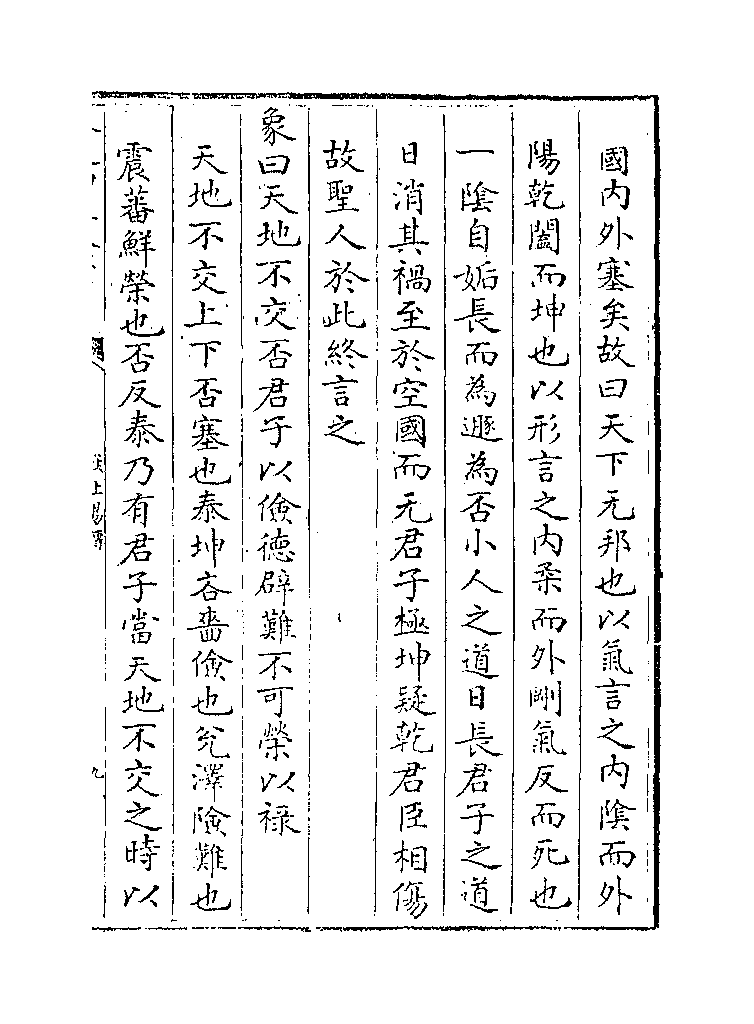 國内外塞矣故曰天下无邦也以氣言之内隂而外
陽乾闔而坤也以形言之内柔而外剛氣反而死也
一隂自姤長而為遯為否小人之道日長君子之道
日消其禍至於空國而无君子極坤疑乾君臣相傷
故聖人於此終言之
象曰天地不交否君子以儉徳辟難不可榮以禄
天地不交上下否塞也泰坤吝嗇儉也兊澤險難也
震蕃鮮榮也否反泰乃有君子當天地不交之時以
漢上易傳
九